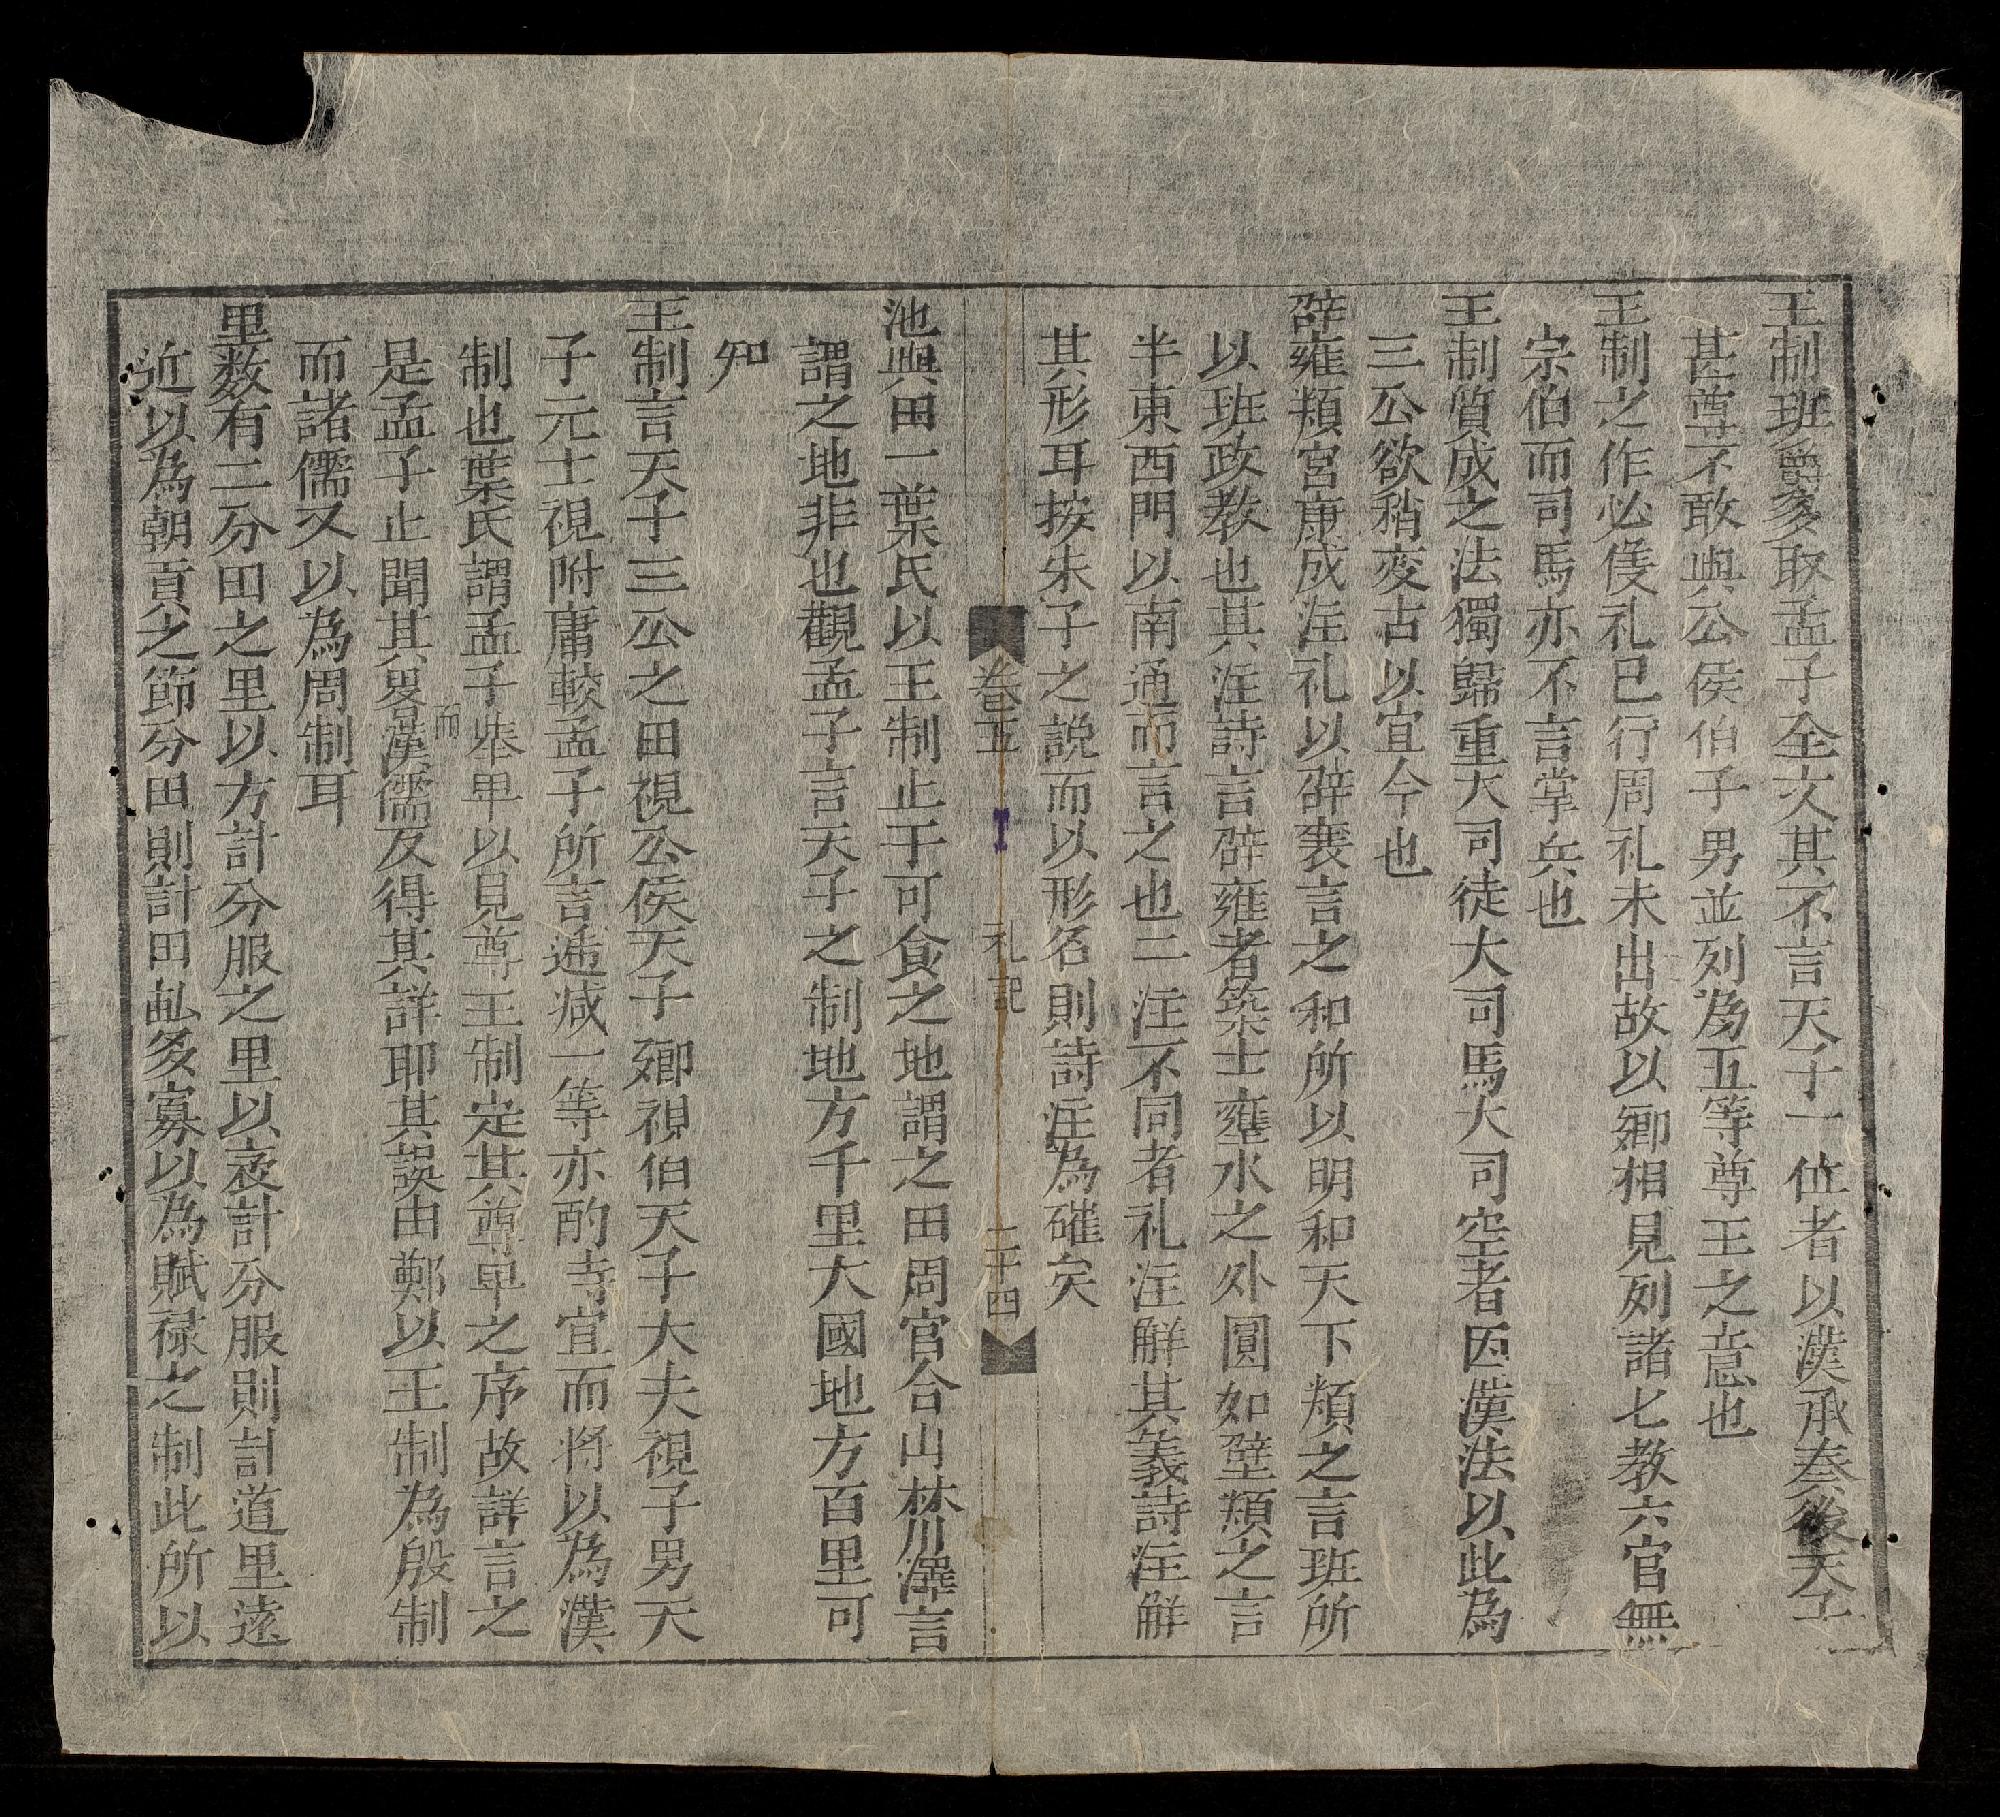 王制班爵多取孟子全文其不言天子一位者以漢承秦後天子
甚尊不敢與公侯伯子男並列為五等尊王之意也
王制之作必後礼已行周礼未出故以鄉相見列諸七教六官無
宗伯而司馬亦不言掌兵也
王制質成之法獨歸重大司徒大司馬大司空者因漢法以此為
三公欲稍变古以宜今也
辟雍頖宮康成注礼以辟衰言之和所以明和天下頖之言班所
以班政教也其注詩言辟雍者築士壅水之外圓如壁頖之言
半東西門以南通而言之也二注不同者礼注觧其義詩注觧
其形耳按朱子之說而以形名則詩注為確矣
卷五 礼記 二十四
池與田一葉氏以王制止于可食之地謂之田周官合山林川澤言
謂之地非也觀孟子言天子之制地方千里大國地方百里可
知
王制言天子三公之田視公侯天子鄉視伯天子大夫視子男天
子元士視附庸較孟子所言逓减一等亦酌寺宜而将以為漢
制也葉氏謂孟子举卑以見尊而王制定其尊卑之序故詳言之
是孟子止聞其畧漢儒反得其詳耶其誤由鄭以王制為殷制
而諸儒又以為周制耳
里数有二分田之里以方計分服之里以袤計分服則計道里遠
近以為朝貢之節分田則計田畆多寡以為賦禄之制此所以